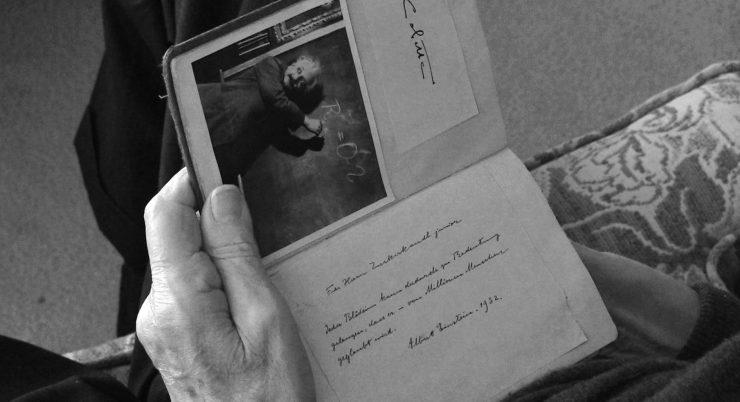 Colette
R = 0
Für Herrn Zuckerkandl junior
Jeder Blödsinn kann dadurch zu Bedeutung
gelangen, dass er – von Millionen Menschen
geglaubt wird.
Albert Einstein. 1932.